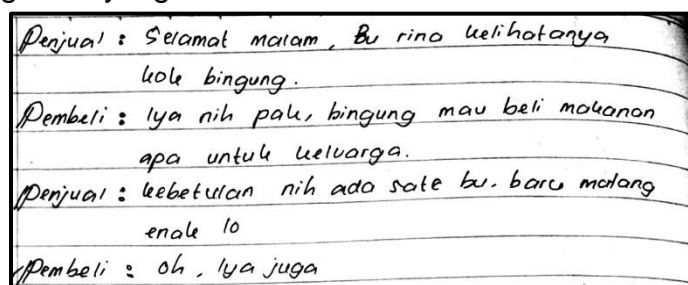 Penjual : Selamat malam, Bu rina kelihatanya
kok bingung.
Pembeli : Iya nih pak, bingung mau beli makanan
apa untuk keluarga.
Penjual : kebetulan nih ada sate bu. baru matang
enak lo
Pembeli : oh, Iya juga